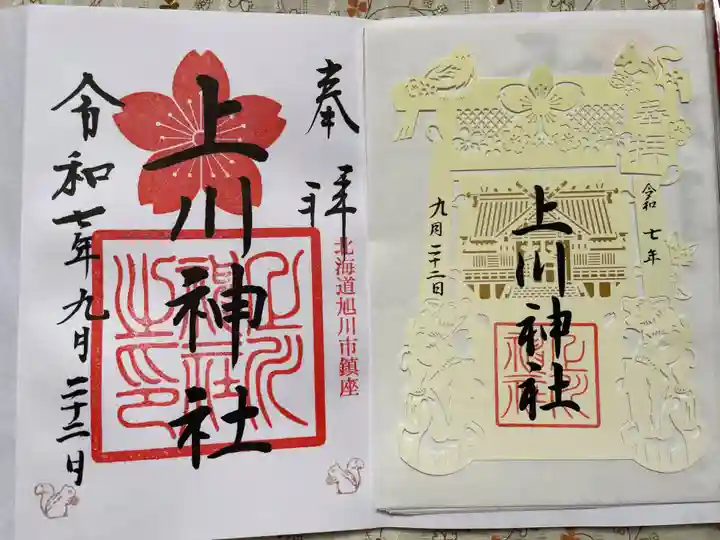 奉拝
上川神社
北海道旭川市鎮座
令和七年九月二十二日
奉拝
令和七年
上川神社
九月二十二日